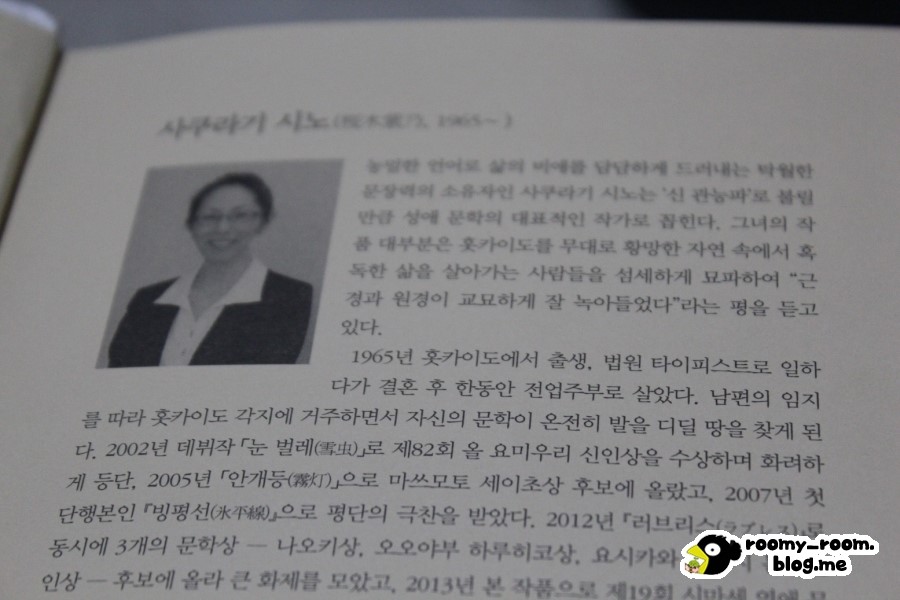 사쿠라기 시노(桜木紫乃, 1965~ )
농밀한 언어로 삶의 비애를 담담하게 드러내는 탁월한
문장력의 소유자인 사쿠라기 시노는 '신 관능파'로 불릴
만큼 성애 문학의 대표적인 작가로 꼽힌다. 그녀의 작
품 대부분은 홋카이도를 무대로 황망한 자연 속에서 혹
독한 삶을 살아가는 사람들을 섬세하게 묘파하여 "근
경과 원경이 교묘하게 잘 녹아들었다"라는 평을 듣고
있다.
1965년 홋카이도에서 출생, 법원 타이피스트로 일하
다가 결혼 후 한동안 전업주부로 살았다. 남편의 임지
를 따라 홋카이도 각지에 거주하면서 자신의 문학이 온전히 발을 디딜 땅을 찾게 된
다. 2002년 데뷔작 「눈 벌레(雪虫)」로 제82회 올 요미우리 신인상을 수상하며 화려하
게 등단, 2005년 「안개등(霧灯)」으로 마쓰모토 세이초상 후보에 올랐고, 2007년 첫
단행본인 『빙평선(氷平線)』으로 평단의 극찬을 받았다. 2012년 『러브리스(ラブレス)』로
동시에 3개의 문학상 ─ 나오키상, 오오야부 하루히코상, 요시카와
인상 ─ 후보에 올라 큰 화제를 모았고, 2013년 본 작품으로 제19회
roomy_room.
blog.me